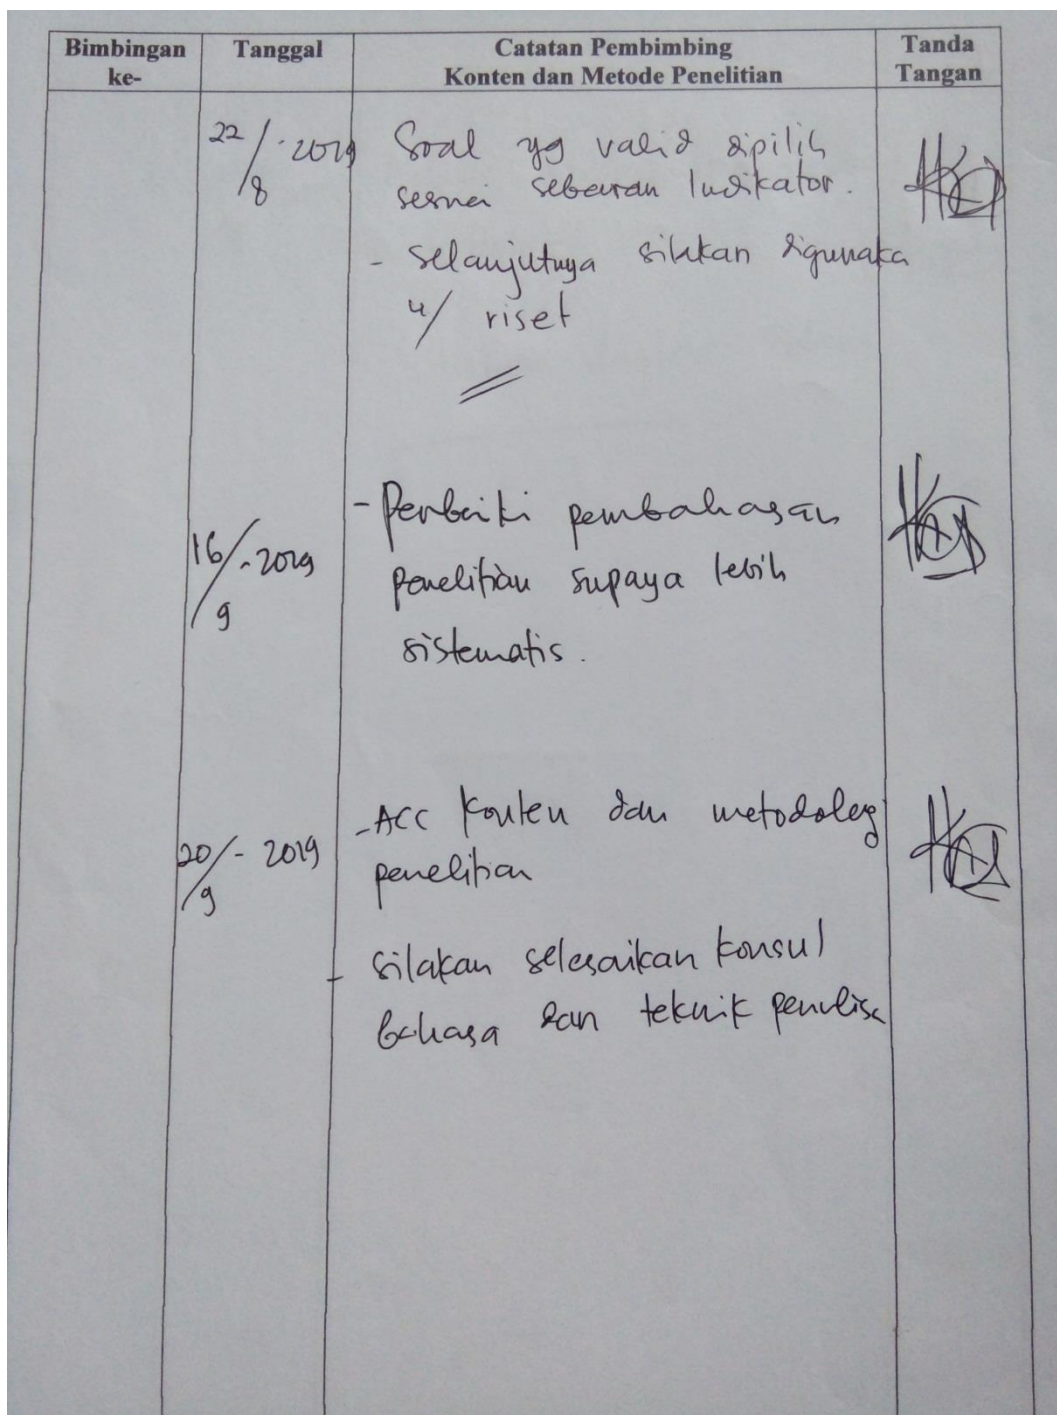 Bimbingan ke-
Tanggal
Catatan Pembimbing
Konten dan Metode Penelitian
Tanda Tangan
22/8-2019
Soal yg valid dipilih
sesuai sebaran Indikator.
- Selanjutnya silakan digunaka
u/ riset
16/9-2019
- Perbaiki pembahasan
penelitian supaya lebih
sistematis.
20/9-2019
- ACC Konten dan metodologi
penelitian
- silakan selesaikan konsul
bahasa dan teknik penulisa